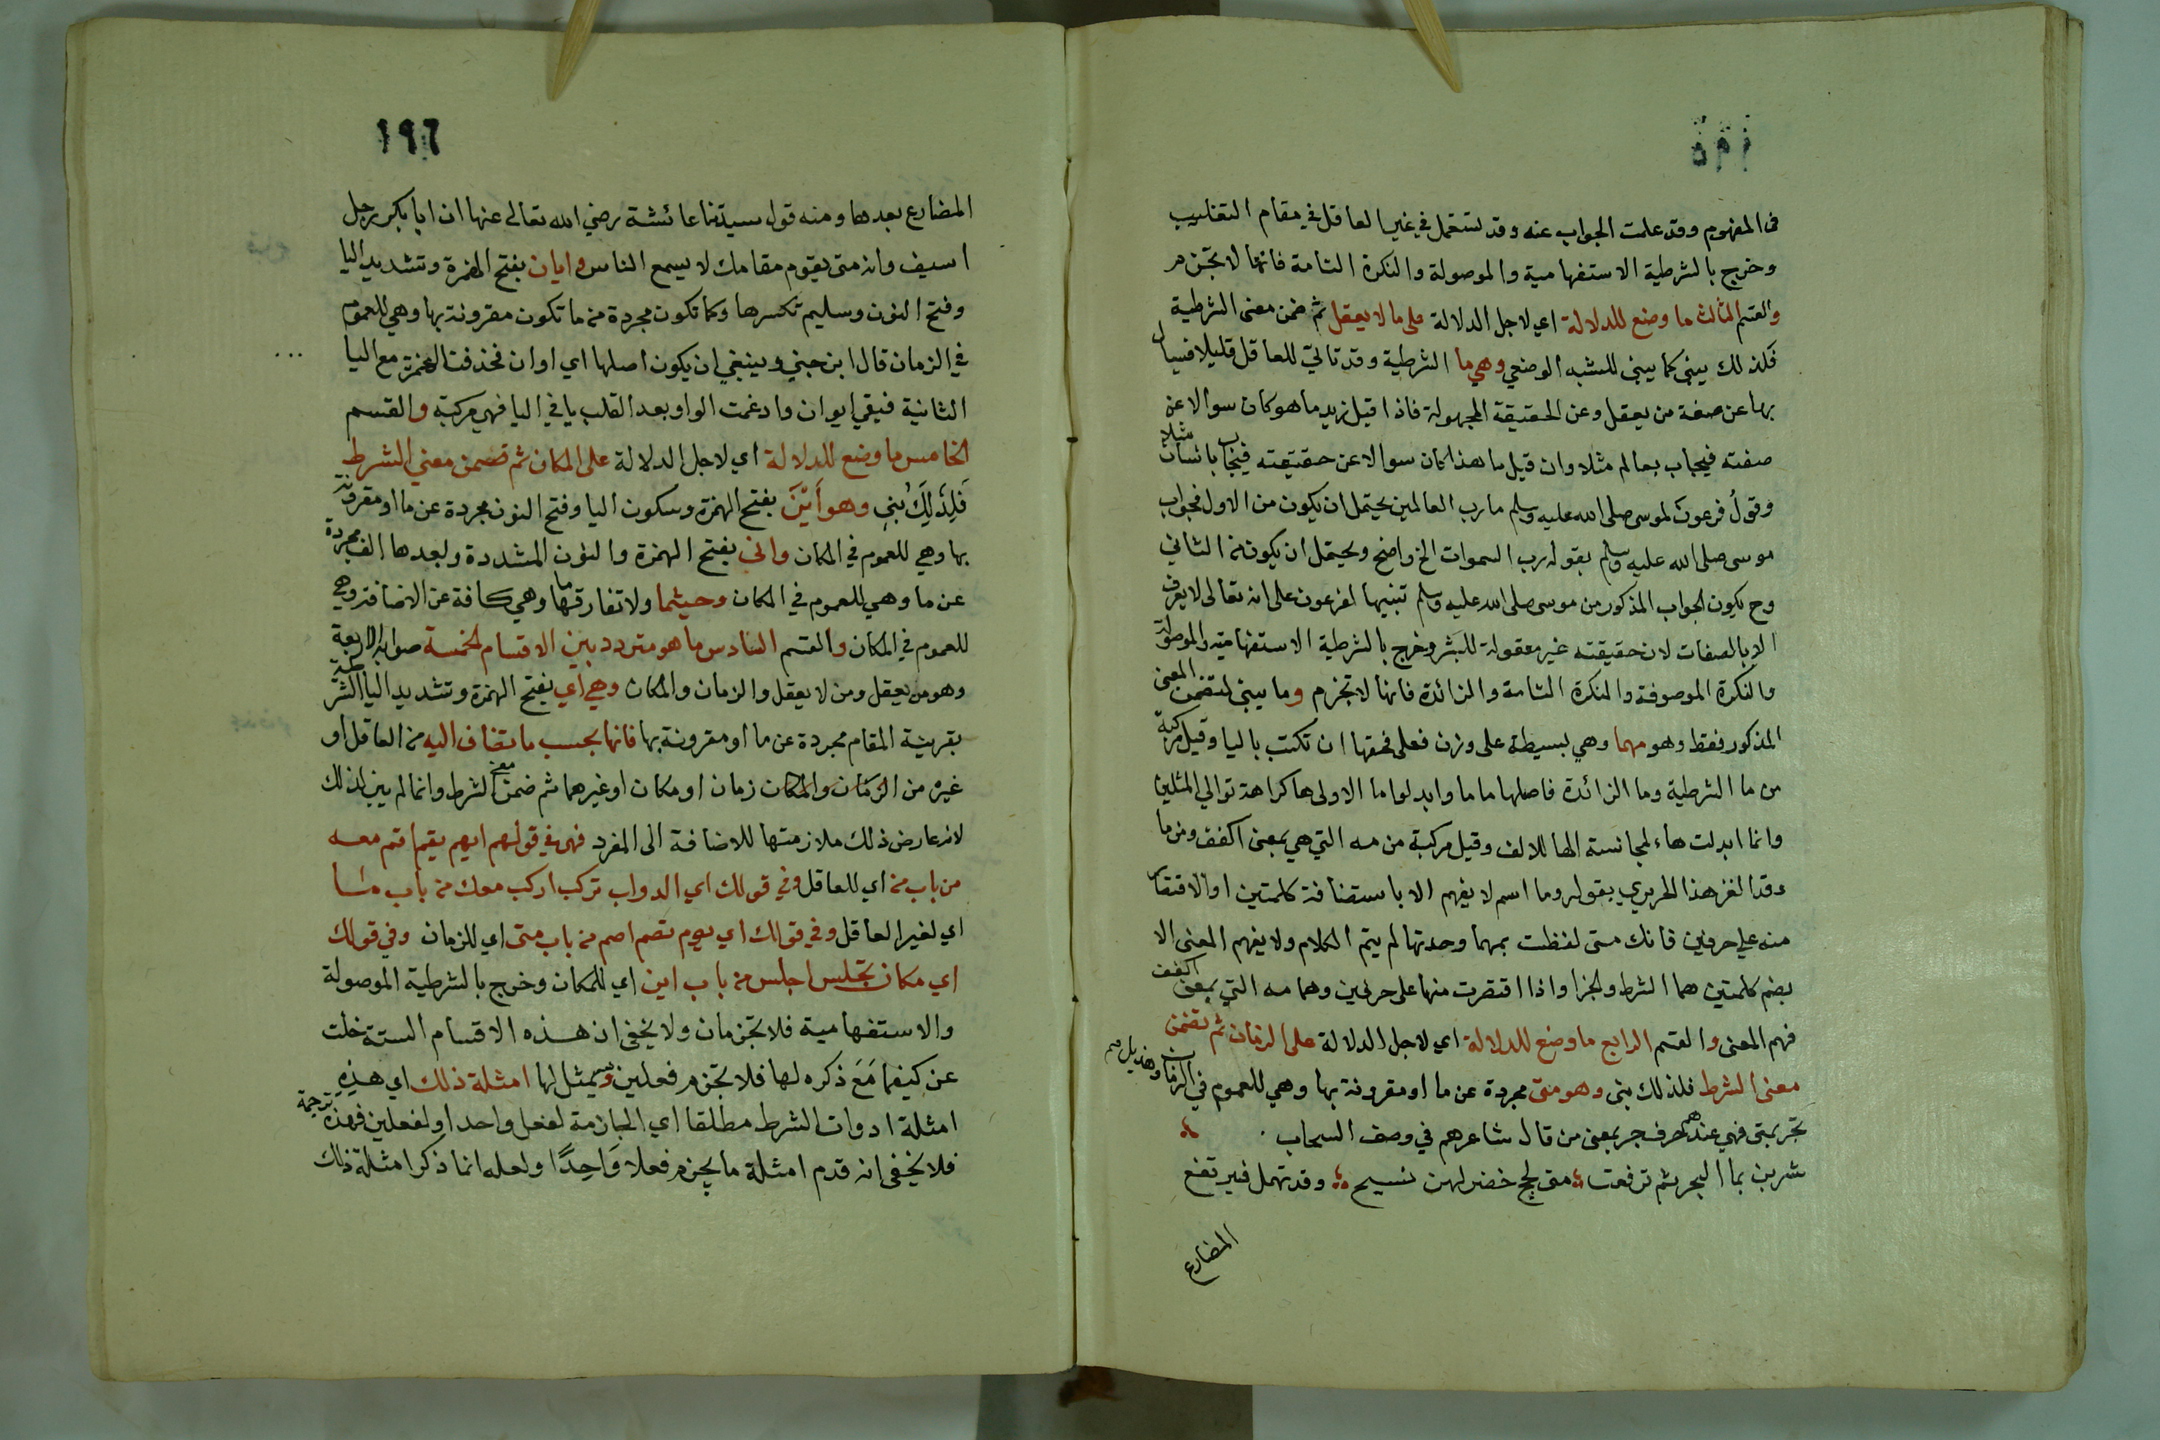 في المفهوم وقد علمت الجواب عنه وقد تستعمل في غير العاقل في مقام التغليب
وخرج بالشرطية الاستفهامية والموصولة والنكرة التامة فانها لا تجزم
والقسم الثالث ما وضع للدلالة اي لاجل الدلالة على ما لا يعقل ثم ضمن معنى الشرطية
فلذلك يبنى كما يبنى للشبه الوضعي وهي ما الشرطية وقد تاتي للعاقل قليلا فيسال
بها عن صفة من يعقل وعن الحقيقة المجهولة فاذا قيل زيد ما هو كان سوالا عن
صفته فيجاب بعالم مثلا وان قيل ما هذا كان سوالا عن حقيقته فيجاب بانسان مثلا
وقول فرعون لموسى صلى الله عليه وسلم ما رب العالمين يحتمل ان يكون من الاول فجواب
موسى صلى الله عليه وسلم بقوله رب السموات الخ واضح ويحتمل ان يكون من الثاني
وح يكون الجواب المذكور من موسى صلى الله عليه وسلم تنبيها لفرعون على انه تعالى لا يعرف
الا بالصفات لان حقيقته غير معقولة للبشر وخرج بالشرطية الاستفهامية والموصولة
والنكرة الموصوفة والنكرة التامة والزائدة فانها لا تجزم وما يبنى لتضمن المعنى
المذكور فقط وهو مهما وهي بسيطة على وزن فعلى فحقها ان تكتب باليا وقيل مركبة
من ما الشرطية وما الزائدة فاصلها ما ما وابدلوا ما الاولى ها كراهة توالي المثلين
وانما ابدلت هاء لمجانسة الها للالف وقيل مركبة من مه التي هي بمعنى اكفف ومن ما
وقد الغز هذا الحريري بقوله وما اسم لا يفهم الا باستضافة كلمتين او الاقتصار
منه على حرفين فانك متى لفظت بمهما وحدتها لم يتم الكلام ولا يفهم المعنى الا
بضم كلمتين هما الشرط والجزا واذا اقتصرت منها على حرفين وهما مه التي بمعنى اكفف
فهم المعنى والقسم الرابع ما وضع للدلالة اي لاجل الدلالة على الزمان ثم تضمن
معنى الشرط فلذلك بنى وهو متى مجردة عن ما او مقرونة بها وهي للعموم في الزمان وهذيل
تجر بمتى فهي عندهم حرف جر بمعنى من قال شاعرهم في وصف السحاب
شربن بما البحر ثم ترفعت متى لجج خضر لهن نسيج وقد تهمل فيرتفع
المضارع
١٩٦
المضارع بعدها ومنه قول سيدتنا عائشة رضي الله تعالى عنها ان ابا بكر رجل
اسيف وانه متى يقوم مقامك لا يسمع الناس وايان بفتح الهمزة وتشديد اليا
وفتح النون وسليم تكسرها وكما تكون مجردة من ما تكون مقرونة بها وهي للعموم
في الزمان قال ابن جني وينبغي ان يكون اصلها اي اوان فحذفت الهمزة مع اليا
الثانية فبقي ايوان وادغمت الواو بعد القلب يا في اليا فهي مركبة والقسم
الخامس ما وضع للدلالة اي لاجل الدلالة على المكان ثم تضمن معنى الشرط
فلذلك بني وهو أين بفتح الهمزة وسكون اليا وفتح النون مجردة عن ما او مقرونة
بها وهي للعموم في المكان وانى بفتح الهمزة والنون المشددة وبعدها الف مجردة
عن ما وهي للعموم في المكان وحيثما ولا تفارقها ما وهي كافة عن الاضافة وهي
للعموم في المكان والقسم السادس ما هو متردد بين الاقسام الخمسة صوابه الاربعة
وهو من يعقل ومن لا يعقل والزمان والمكان وهي أي بفتح الهمزة وتشديد اليا الشرطية
بقرينة المقام مجردة عن ما او مقرونة بها فانها بحسب ما تضاف اليه من العاقل او
غيره من الزمان والمكان زمان او مكان او غيرهما ثم ضمن معنى الشرط وانما لم يبن لذلك
لانه عارض ذلك ملازمتها للاضافة الى المفرد فهي في قولهم ايهم يقم اقم معه
من باب من اي للعاقل وفي قولك اي الدواب تركب اركب معك من باب ما
اي لغير العاقل وفي قولك اي يوم تصم اصم من باب متى اي للزمان وفي قولك
اي مكان تجلس اجلس من باب اين اي للمكان وخرج بالشرطية الموصولة
والاستفهامية فلا تجزمان ولا يخفى ان هذه الاقسام الستة خلت
عن كيفما مع ذكره لها فلا تجزم فعلين وسيمثل لها امثلة ذلك اي هذه
امثلة ادوات الشرط مطلقا اي الجازمة لفعل واحد او لفعلين فهذه ترجمة
فلا يخفى انه قدم امثلة ما يجزم فعلا واحدا ولعله انما ذكر امثلة ذلك